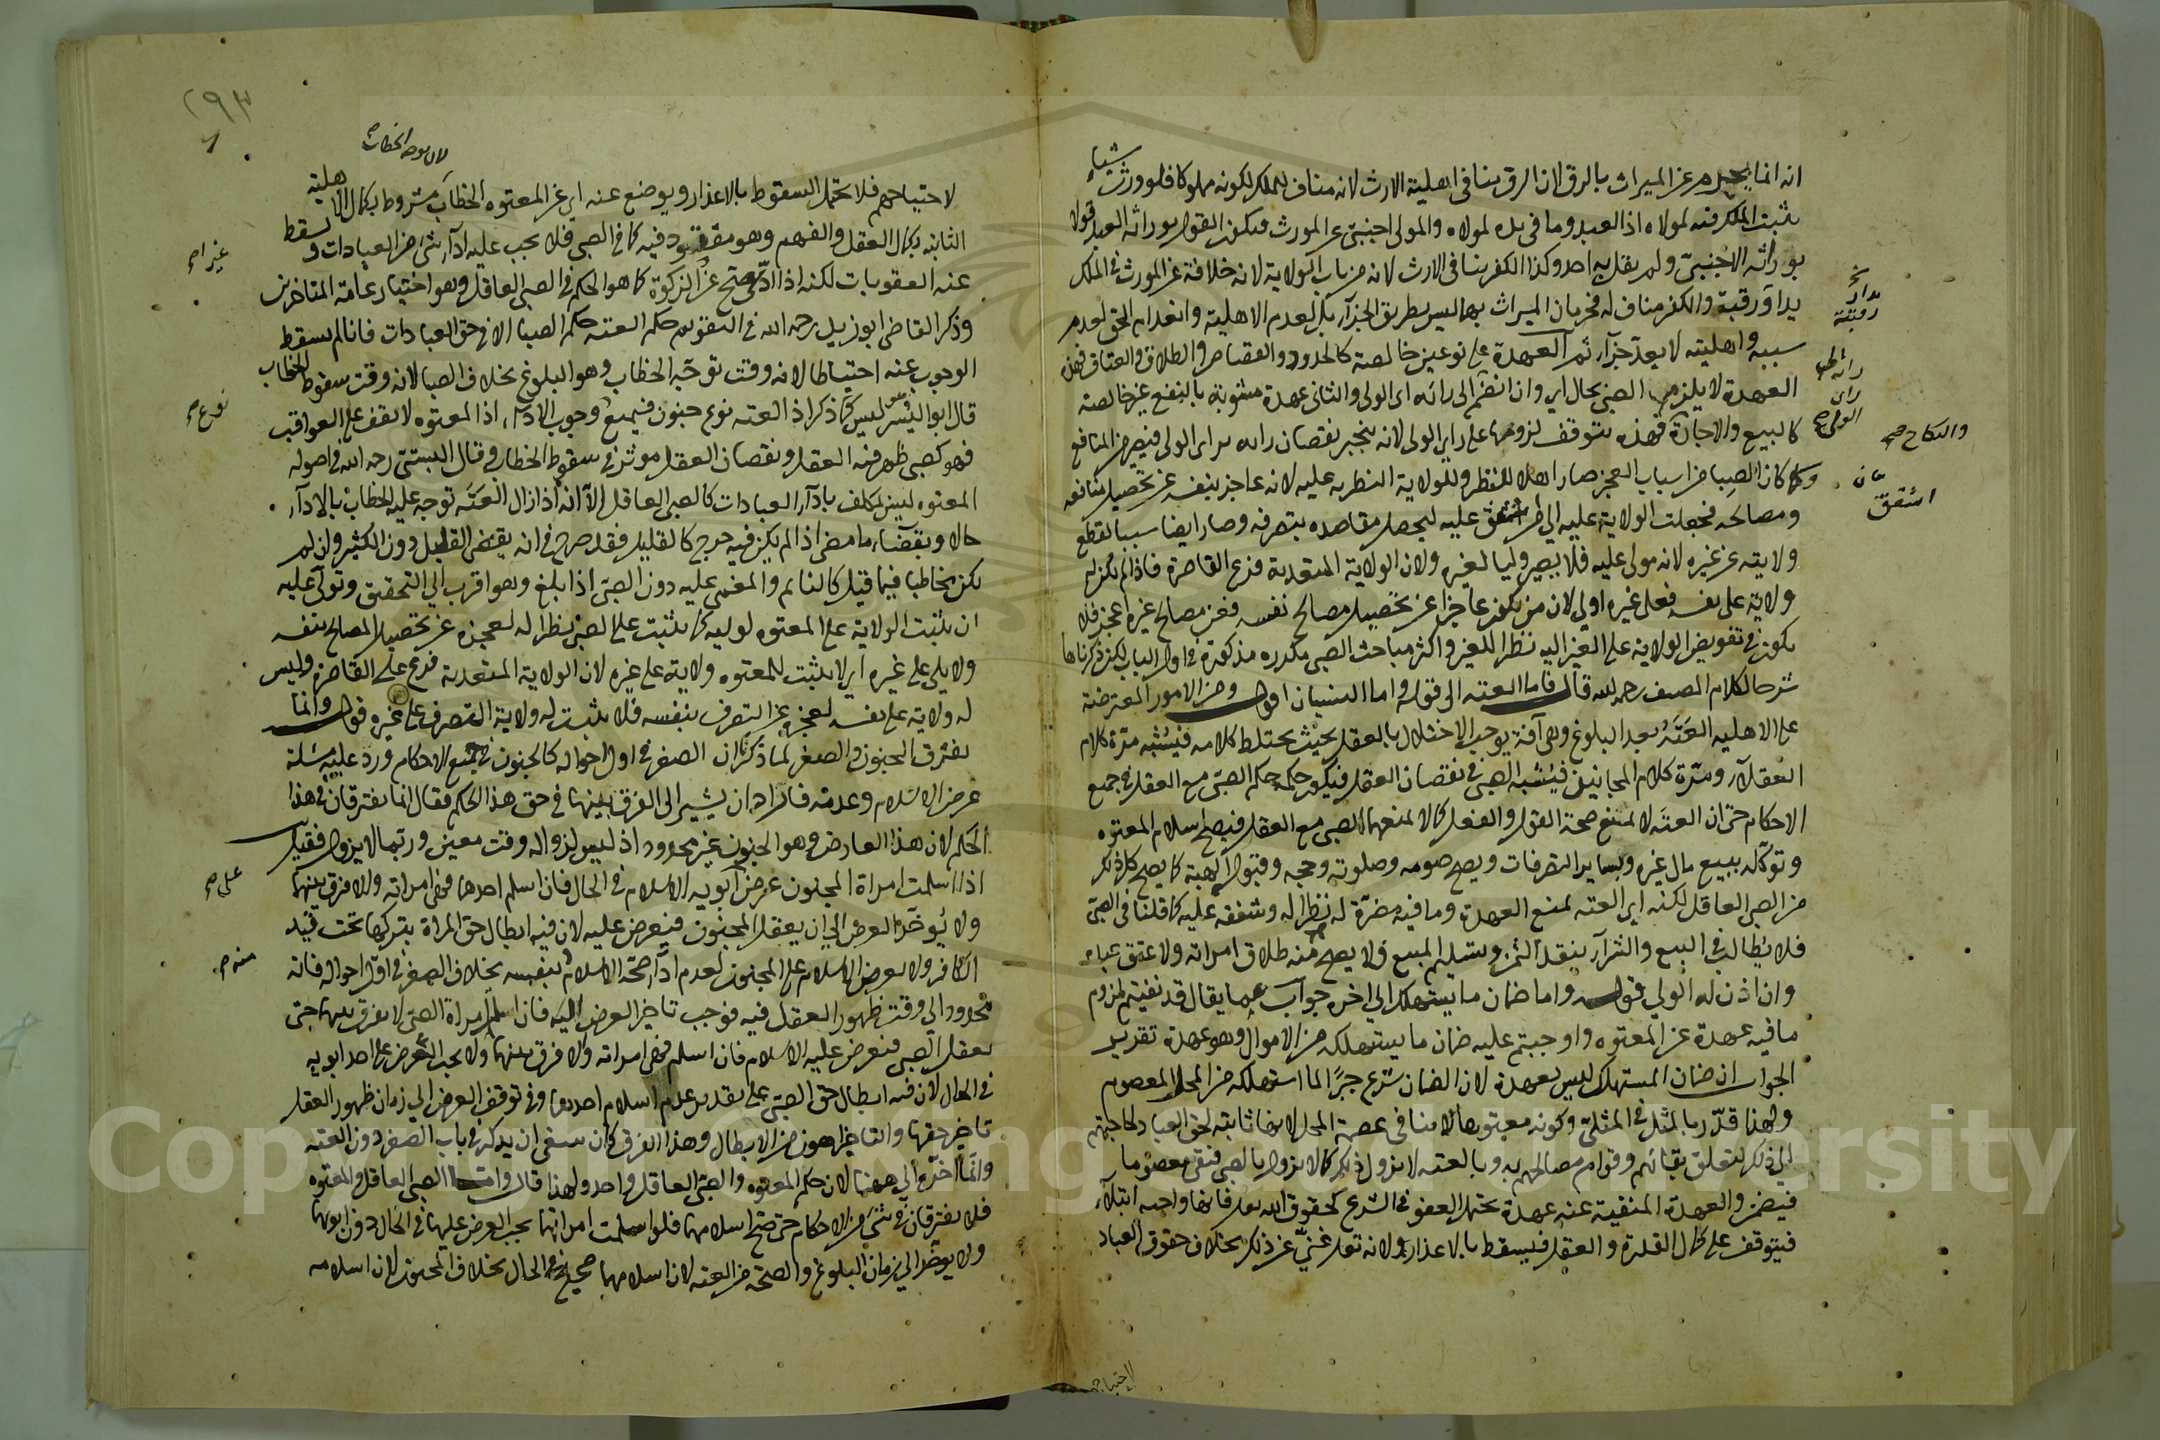 انه انما يحرم عن الميراث بالرق لان الرق ينافى اهلية الارث لانه مناف للملك لكونه مملوكا فلو ورث شيأ
يثبت الملك فيه لمولاه اذ العبد وما فى يده لمولاه والمولى اجنبى عن المورث فيكون القول بوراثه العبد قولا
بوراثه الاجنبى ولم يقل به احد وكذا الكفر ينافى الارث لانه من باب الولاية لانه خلافة عن المورث فى الملك
يدا ورقبة والكفر مناف له فحرمان الميراث بهما ليس بطريق الجزآء بل لعدم الاهلية وانعدام الحق لعدم
سببه واهليته لا يعد جزآء ثم العهدة على نوعين خالصة كالحدود والقصاص والطلاق والعتاق فهذه
العهدة لا يلزم الصبى بحال اى وان انضم الى رائه اى الولى والثانى عهدة مشوبة بالنفع غير خالصة
كالبيع والاجارة فهذه يتوقف لزومها على راى الولى لانه ينجبر نقصان رايه براى الولى فيصير من المنافع
ولما كان الصبا من اسباب العجز صار اهلا للنظر وللولاية النظرية عليه لانه عاجز بنفسه عن تحصيل منافعه
ومصالحه فجعلت الولاية عليه الى من اشفق عليه ليحصل مقاصده بتصرفه وصار ايضا سببا لقطع
ولايته عن غيره لانه مولى عليه فلا يصير وليا لغيره ولان الولاية المتعدية فرع القاصرة فاذا لم يكن له
ولاية على نفسه فعلى غيره اولى لان من يكون عاجزا عن تحصيل مصالح نفسه فعن مصالح غيره اعجز فلا
يكون فى تفويض الولاية على الغير اليه نظرا للغير واكثر مباحث الصبى مكررة مذكورة فى اول الباب لكن ذكرناها
شرحا لكلام المصنف رحمه الله قال فاما العته الى قوله واما النسيان اقول ومن الامور المعترضة
على الاهليه العته بعد البلوغ وهى آفة يوجب الاختلال بالعقل بحيث يختلط كلامه فيشبه مرة كلام
العقلآء ومرة كلام المجانين فيشبه الصبى فى نقصان العقل فيكون حكمه حكم الصبى مع العقل فى جميع
الاحكام حتى ان العته لا يمنع صحة القول والفعل كما لا يمنعهما الصبى مع العقل فيصح اسلام المعتوه
وتوكله ببيع مال غيره وبساير التصرفات ويصح صومه وصلوته وحجه وقبول الهبة كما يصح كل ذلك
من الصبى العاقل لكنه اى العته يمنع العهدة وما فيه مضرة له نظرا له وشفقه عليه كما قلنا فى الصبى
فلا يطالب فى البيع والشرآء بنقد الثمن وتسليم المبيع ولا يصح منه طلاق امراته ولا عتق عبده
وان اذن له الولى قوله واما ضمان ما يستهلك الى اخره جواب عما يقال قد نفيتم لزوم
ما فيه عهدة عن المعتوه واوجبتم عليه ضمان ما يستهلكه من الاموال وهو عهدة تقرير
الجواب ان ضمان المستهلك ليس بعهدة لان الضمان شرع جبرا لما استهلكه من المحل المعصوم
ولهذا قدر بالمثل فى المثلى وكونه معتوها لا ينافى عصمة المحل لانها ثابتة لحق العباد لحاجتهم
الى ذلك لتعلق بقائهم وقوام مصالحهم به وبالعته لا يزول ذلك كما لا يزول بالصبى فبقى معصوما
فيضمن والعهدة المنفية عنه عهدة يحتمل العفو فى الشرع كحقوق الله تعالى فانها واجبه ابتلآء
فيتوقف على كمال القدرة والعقل فيسقط بالاعذار ولانه تعالى غنى عن ذلك بخلاف حقوق العباد
نخ
يدا
ورقبة
رائه
راى
الولى صح
والنكاح صح
اشفق
الاحتياجهم
٢٩٣
لان توجه الخطاب
لاحتياجهم فلا تحتمل السقوط بالاعذار ويوضع عنه اى عن المعتوه الخطاب مشروط بكمال الاهلية
الثانية بكمال العقل والفهم وهو مفقود فيه كما فى الصبى فلا يجب عليه ادآء شئ من العبادات ويسقط
عنه العقوبات لكنه اذا ادى صح عن الزكوة كما هو الحكم فى الصبى العاقل وهو اختيار عامة المتاخرين
وذكر القاضى ابو زيد رحمه الله فى التقويم حكم العته حكم الصبا الا فى حق العبادات فانا لم يسقط
الوجوب عنه احتياطا لانه وقت توجه الخطاب وهو البلوغ بخلاف الصبا لانه وقت سقوط الخطاب
قال ابو اليسر ليس كما ذكر اذ العته نوع جنون فيمنع وجوب الادآء اذ المعتوه لا يقف على العواقب
فهو كصبى ظهر فيه العقل ونقصان العقل موثر فى سقوط الخطاب وقال البستى رحمه الله فى اصوله
المعتوه ليس بمكلف بادآء العبادات كالصبى العاقل الا انه اذا زال العته توجه عليه الخطاب بالادآء
حالا وبقضآء ما مضى اذا لم يكن فيه حرج كالقليل فقد صرح فى انه يقضى القليل دون الكثير وان لم
يكن مخاطبا فيما قبل كالنايم والمغمى عليه دون الصبى اذا بلغ وهو اقرب الى التحقيق وتولى عليه
ان يثبت الولاية على المعتوه لوليه كما يثبت على الصبى نظرا له لعجزه عن تحصيل المصالح بنفسه
ولا يلى على غيره اى لا يثبت للمعتوه ولاية على غيره لان الولاية المتعدية فرع على القاصرة وليس
له ولاية على نفسه لعجزه عن التصرف بنفسه فلا يثبت له ولاية التصرف على غيره قوله وانما
يفترق الجنون والصغر لما ذكر ان الصغر فى اول احواله كالجنون فى جميع الاحكام ورد عليه مسئلة
عرض الاسلام وعدمه فاراد ان يشير الى الفرق بينهما فى حق هذا الحكم فقال انما يفترقان فى هذا
الحكم لان هذا العارض وهو الجنون غير محدود اذ ليس لزواله وقت معين وربما لا يزول فقيل
اذا اسلمت امراة المجنون عرض على ابويه الاسلام فى الحال فان اسلم احدهما فهى امراته والا فرق بينهما
ولا يؤخر العرض الى ان يعقل المجنون فيعرض عليه لان فيه ابطال حق المراة بتركها تحت قيد
الكافر ولا يعرض الاسلام على المجنون لعدم ادآء صحة الاسلام بنفسه بخلاف الصغر فى اول احواله فانه
محدود الى وقت ظهور العقل فيه فوجب تاخير العرض اليه فان اسلم امراة الصبى لا يفرق بينهما حتى
يعقل الصبى فيعرض عليه الاسلام فان اسلم فهى امراته والا فرق بينهما ولا يجب العرض على احد ابويه
فى الحال لان فيه ابطال حق الصبى على تقدير عدم اسلام احدهما وفى توقف العرض الى زمان ظهور العقل
تاخير حقها والتاخير اهون من الابطال وهذا الفرق كان ينبغى ان يذكر فى باب الصغر دون العته
وانما اخره الى ههنا لان حكم المعتوه والصبى العاقل واحد ولهذا قال واما الصبى العاقل والمعتوه
فلا يفترقان فى شئ من الاحكام حتى صح اسلامهما فلو اسلمت امراتهما يجب العرض عليهما فى الحال دون ابويهما
ولا يؤخر الى زمان البلوغ والصحة من العته لان اسلامهما صحيح فى الحال بخلاف المجنون لان اسلامه
غير صح
نوع صح
على صح
منه صح
Copyright © King Saud University